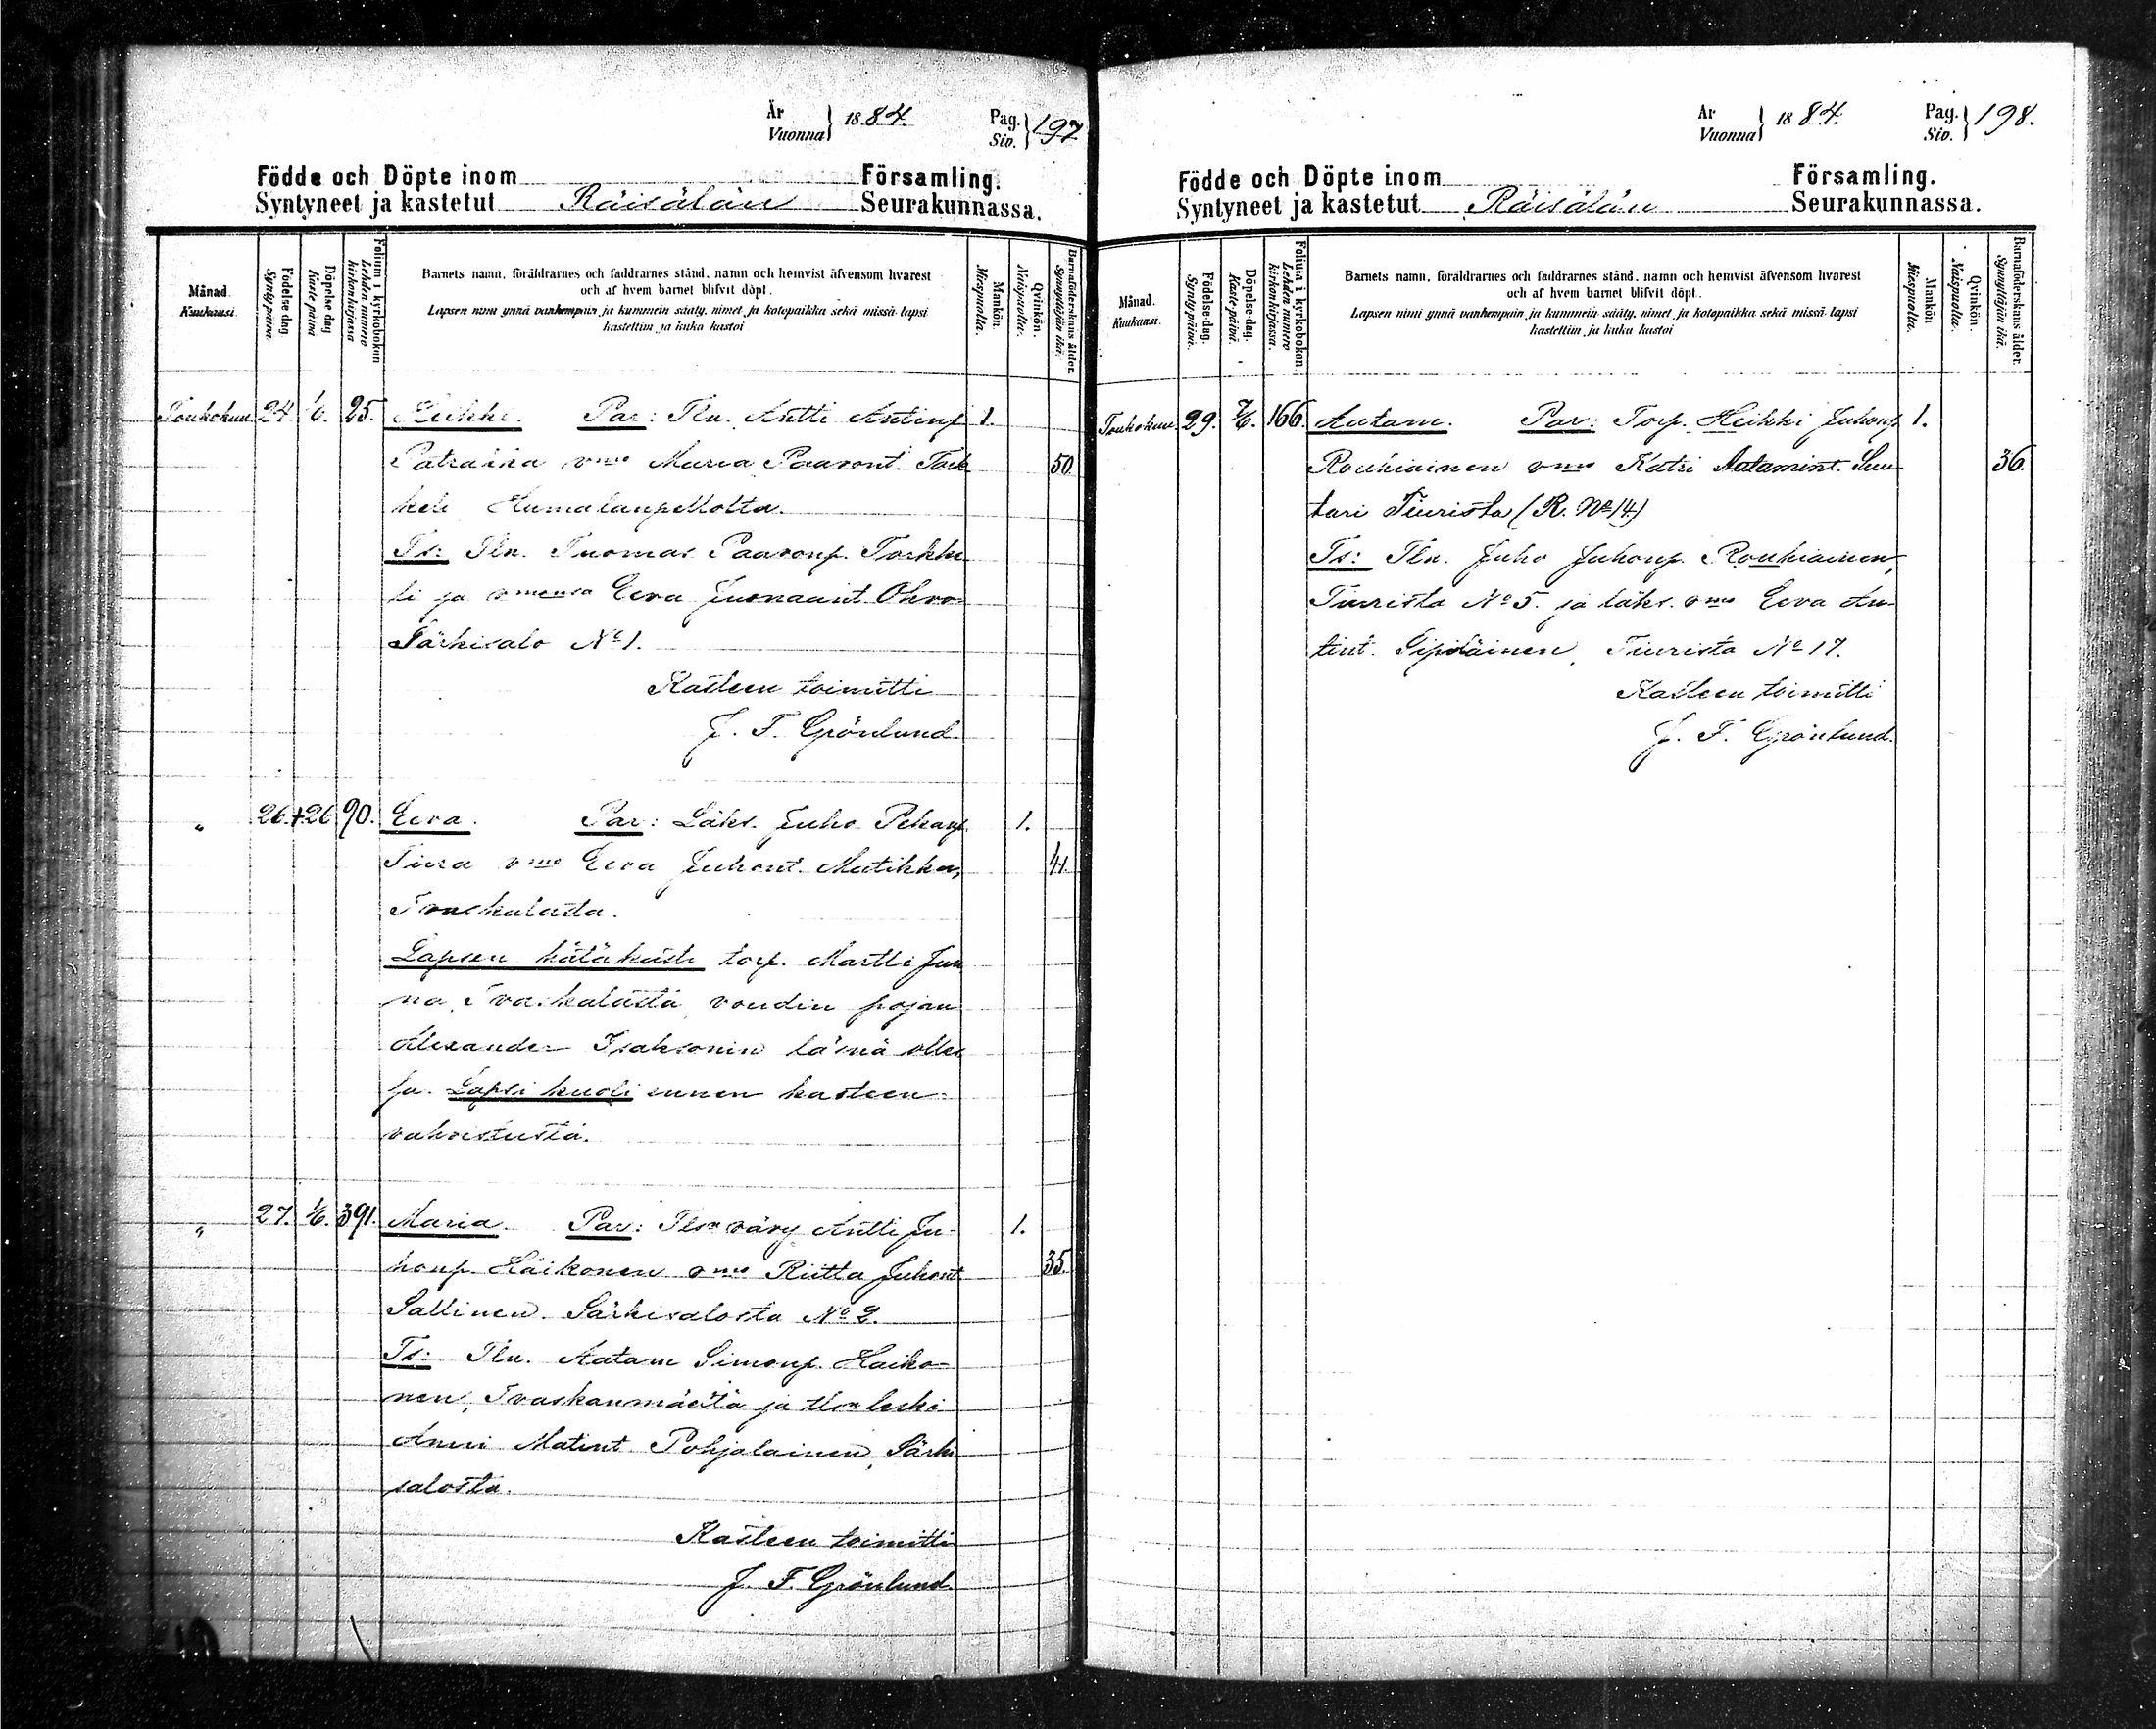 År
Vuonna } 1884.
Pag.
Siv. } 197
Födde och Döpte inom Församling.
Syntyneet ja kastetut Räisälän Seurakunnassa.
Månad.
Kuukausi.
Födelse dag.
Synty päivä.
Döpelse dag
Kaste päivä
Folium i kyrkoboken
Lehden numero
kirkonkirjassa
Barnets namn, föräldrarnes och faddrarnes stånd, namn och hemvist äfvensom hvarest
och af hvem barnet blifvit döpt.
Lapsen nimi ynnä vanhempain ja kummein sääty, nimet ja kotopaikka sekä missä lapsi
kastettiin ja kuka kastoi
Mankön.
Miespuolta.
Qvinkön.
Naispuolta.
Barnaföderskans ålder.
Synnyttäjän ikä.
Toukokuu 24. 1/6. 25. Heikki. Par: Tln. Antti Antinp 1.
Patraikka vmo Maria Paavont. Tork 50.
keli Humalaupellolta.
Ts: Tln. Tuomas Paavonp. Torkke
li ja vmonsa Eeva Juonaant. Ohvo
Särkisalo No 1.
Kasteen toimitti
J. F. Grönlund.
" 26. +26 90. Eeva. Par: Läks. Juho Pekanp. 1.
Tiira vmo Eeva Juhont. Mutikka, 41.
Ivaskalasta.
Lapsen hätäkasti torp. Martti Jun
na, Ivaskalasta, voudin pojan
Alexander Isaksonin läsnä olles
sa. Lapsi kuoli ennen kasteen
vahvistusta.
" 27. 1/6. 391. Maria. Par: Tlon vävy Antti Ju- 1.
honp. Häikonen vmo Riitta Juhont 35.
Sallinen. Särkisalosta No 2.
Ts: Tln. Aatam Simonp. Haiko-
nen, Ivaskanmäeltä ja tlon leski
Anni Matint Pohjalainen, Särki
salosta.
Kasteen toimitti
J. F. Grönlund.
År
Vuonna } 1884.
Pag.
Siv. } 198.
Födde och Döpte inom Församling.
Syntyneet ja kastetut Räisälän Seurakunnassa.
Månad.
Kuukausi.
Födelse-dag.
Synty päivä.
Döpelse-dag.
Kaste päivä.
Folium i kyrkoboken
Lehden numero
kirkonkirjassa.
Barnets namn, föräldrarnes och faddrarnes stånd, namn och hemvist äfvensom hvarest
och af hvem barnet blifvit döpt.
Lapsen nimi ynnä vanhempain ja kummein sääty, nimet ja kotopaikka sekä missä lapsi
kastettiin ja kuka kastoi
Mankön
Miespuolta.
Qvinkön.
Naispuolta.
Barnaföderskans ålder.
Synnyttäjän ikä.
Toukokuu. 29. 7/6. 166. Aatam. Par: Torp. Heikki Juhonp 1.
Roukiainen vmo Katri Aatamint. Suu 36.
tari Tiurista (R. No 14)
Ts: Tln. Juho Juhonp. Roukiainen,
Tiurista No 5. ja läks. vmo Eeva An-
tint. Tiurista No 17.
Kasteen toimitti
J. F. Grönlund.